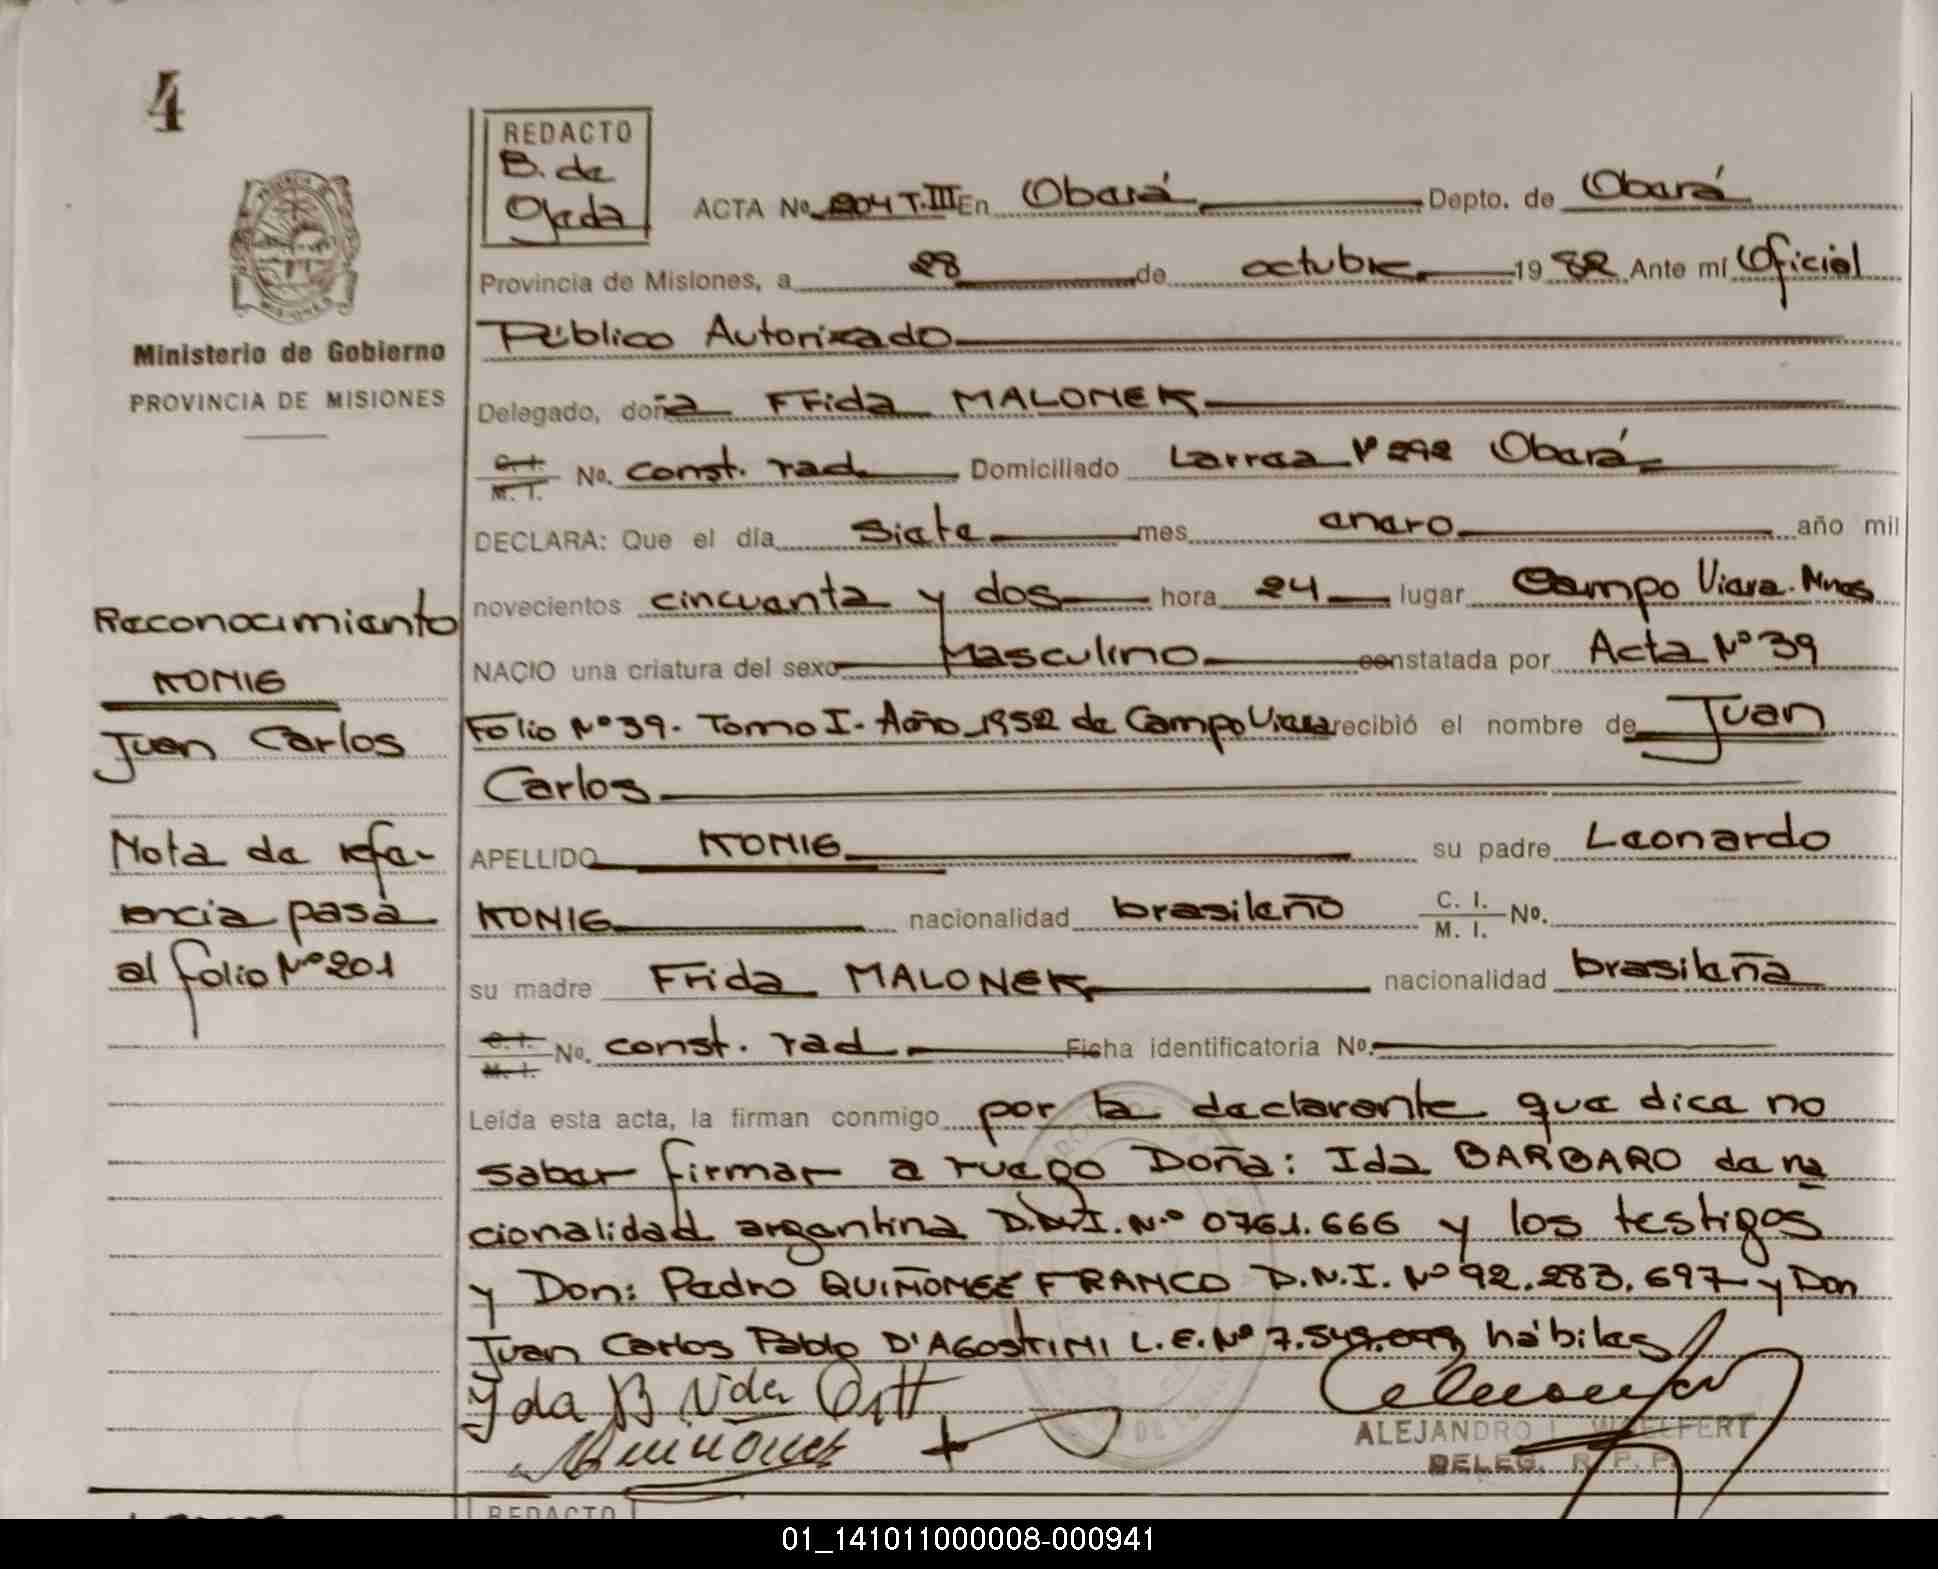 4
REDACTO
B. de
Ojeda
ACTA No. 204 T.III En Oberá Depto. de Oberá
Provincia de Misiones, a 28 de octubre 1982 Ante mí Oficial
Público Autorizado
Delegado, doña Frida MALONEK
C.I. M.I. No. const. rad Domiciliado Larrea Nº 292 Oberá
DECLARA: Que el día siete mes enero año mil
novecientos cincuenta y dos hora 24 lugar Campo Viera. Mnes
NACIO una criatura del sexo Masculino constatada por Acta Nº 39
Folio Nº 39. Tomo I. Año 1952 de Campo Viera recibió el nombre de Juan
Carlos
APELLIDO KONIG su padre Leonardo
KONIG nacionalidad brasileño C. I. M. I. No.
su madre Frida MALONEK nacionalidad brasileña
C.I. M.I. No. const. rad Ficha identificatoria No.
Leída esta acta, la firman conmigo por la declarante que dice no
saber firmar a ruego Doña: Ida BARBARO de na
cionalidad argentina D.N.I. Nº 0761.666 y los testigos
y Don: Pedro QUIÑONEZ FRANCO D.N.I. Nº 92.283.697 y Don
Juan Carlos Pablo D'AGOSTINI L.E. Nº 7.549.099 hábiles
Yda B Vda Ott
Quinonez
ALEJANDRO I. WAELFERT
DELEG. R. P. P.
Ministerio de Gobierno
PROVINCIA DE MISIONES
Reconocimiento
KONIG
Juan Carlos
Nota de refe-
rencia pasa
al folio Nº 201
REDACTO
01_141011000008-000941